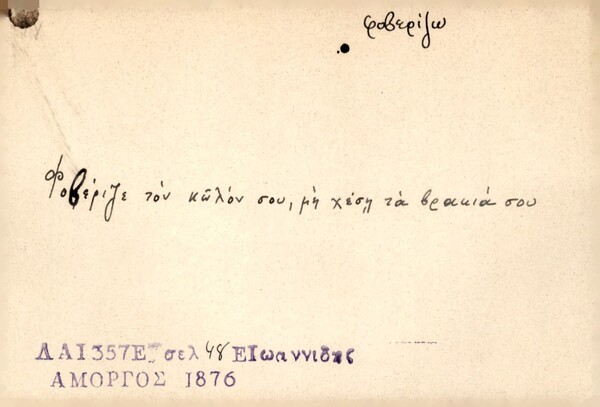 φοβερίζω
Φοβέριζε τὸν κῶλόν σου, μὴ χέσῃ τὰ βρακιά σου
ΛΑ 1357Ε σελ 48 ΕΙωαννιδης
ΑΜΟΡΓΟΣ 1876